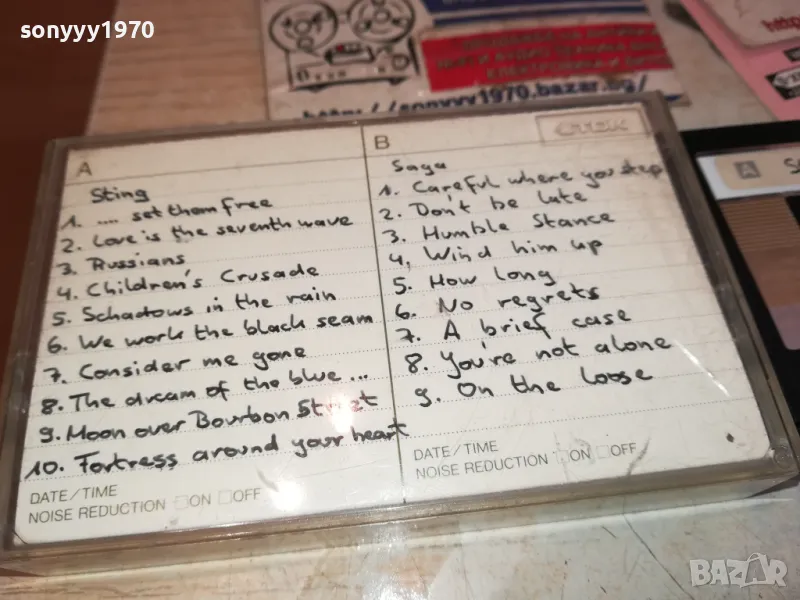 sonyyy1970
http://sonyyy1970.bazar.bg/
http
A
Sting
1. .... set them free
2. Love is the seventh wave
3. Russians
4. Children's Crusade
5. Schadows in the rain
6. We work the black seam
7. Consider me gone
8. The dream of the blue ...
9. Moon over Bourbon Street
10. Fortress around your heart
DATE/TIME
NOISE REDUCTION ON OFF
B
TDK
Saga
1. Careful where you step
2. Don't be late
3. Humble Stance
4. Wind him up
5. How long
6. No regrets
7. A brief case
8. You're not alone
9. On the loose
DATE/TIME
NOISE REDUCTION ON OFF
A
BAZAR